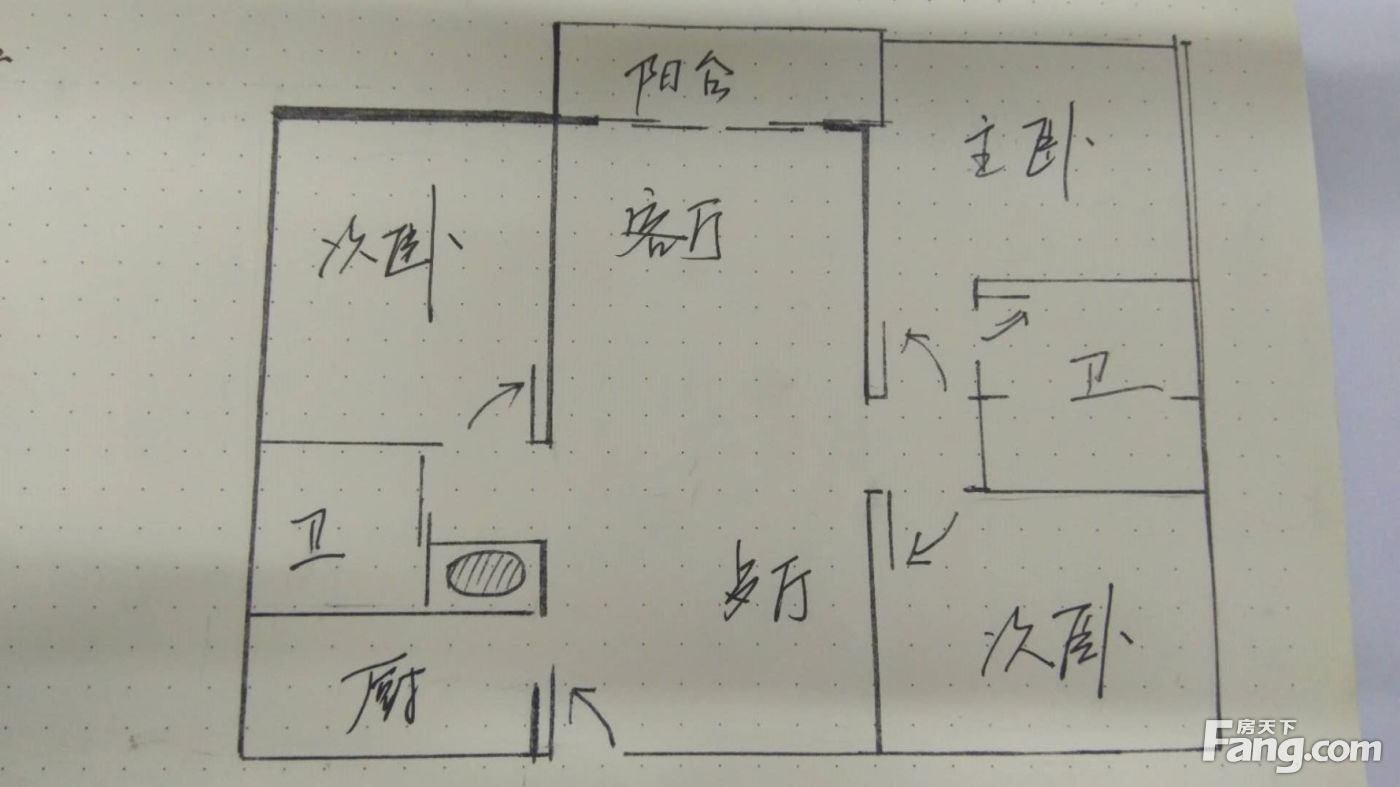 阳台
主卧
次卧
客厅
卫
卫
歺厅
次卧
厨
房天下
Fang.com